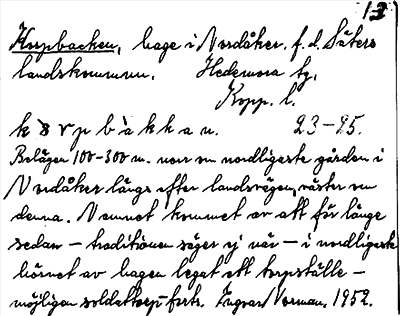 13
Korpbacken, hage i Nordåker, f.d. Säters
landskommun. Hedemora tg,
Kopp. l.
kɔrpbàkkan. 23-25.
Belägen 100-300 m. norr om nordligaste gården i
Nordåker längs efter landsvägen, väster om
denna. Namnet kommet av att för länge
sedan – traditionen säger ej när – i nordligaste
hörnet av hagen legat ett torpställe –
möjligen soldattorp – Ingvar Norman, 1952.